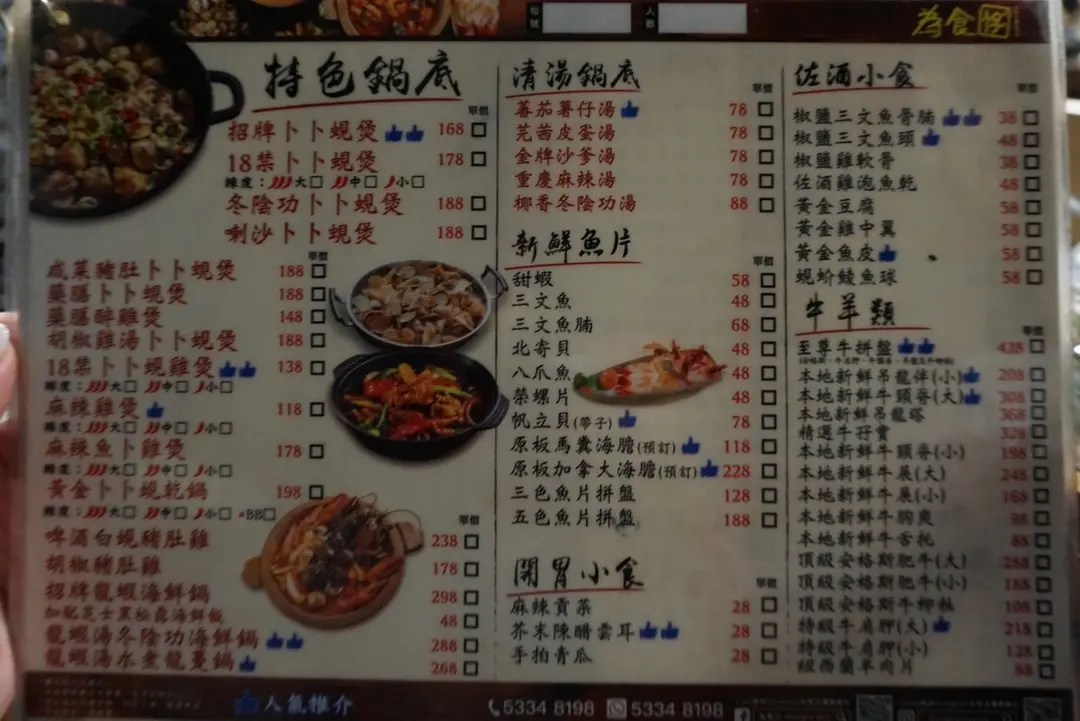 檯號
人數
為食
特色鍋底
單價
招牌卜卜蜆煲 168
18禁卜卜蜆煲 178
辣度：大 中 小
冬陰功卜卜蜆煲 188
喇沙卜卜蜆煲 188
單價
咸菜豬肚卜卜蜆煲 188
藥膳卜卜蜆煲 188
藥膳醉雞煲 148
胡椒雞湯卜卜蜆煲 188
18禁卜卜蜆雞煲 138
辣度：大 中 小
麻辣雞煲 118
辣度：大 中 小
麻辣魚卜雞煲 178
辣度：大 中 小
黃金卜卜蜆乾鍋 198
辣度：大 中 小 BB
單價
啤酒白蜆豬肚雞 238
胡椒豬肚雞 178
招牌龍蝦海鮮鍋 298
加配芝士黑松露海鮮飯 48
龍蝦湯冬陰功海鮮鍋 288
龍蝦湯水煮龍躉鍋 268
清湯鍋底
單價
蕃茄薯仔湯 78
芫茜皮蛋湯 78
金牌沙爹湯 78
重慶麻辣湯 78
椰香冬陰功湯 88
新鮮魚片
單價
甜蝦 58
三文魚 48
三文魚腩 68
北寄貝 48
八爪魚 48
榮螺片 48
帆立貝(帶子) 78
原板馬糞海膽(預訂) 118
原板加拿大海膽(預訂) 228
三色魚片拼盤 128
五色魚片拼盤 188
開胃小食
單價
麻辣貢菜 28
芥末陳醋雲耳 28
手拍青瓜 28
佐酒小食
單價
椒鹽三文魚骨腩 38
椒鹽三文魚頭 48
椒鹽雞軟骨 38
佐酒雞泡魚乾 48
黃金豆腐 58
黃金雞中翼 58
黃金魚皮 58
蜆蚧鯪魚球 58
牛羊類
單價
至尊牛拼盤 428
本地新鮮吊龍伴(小) 208
本地新鮮牛頸脊(大) 308
本地新鮮吊龍塔 368
精選牛孖寶 328
本地新鮮牛頸脊(小) 198
本地新鮮牛展(大) 248
本地新鮮牛展(小) 168
本地新鮮牛胸爽 98
本地新鮮牛舌托 88
頂級安格斯肥牛(大) 288
頂級安格斯肥牛(小) 188
頂級安格斯牛柳粒 108
特級牛肩胛(大) 218
特級牛肩胛(小) 128
紐西蘭羊肉片 88
人氣推介
5334 8198
5334 8198